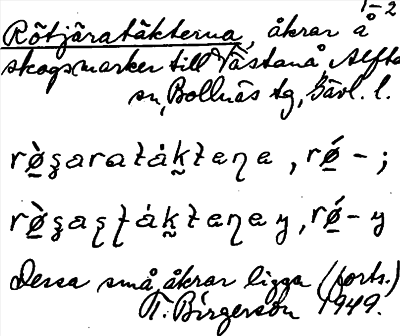 1-2
Rötjäratäkterna, åkrar å
skogsmarker till Västanå Alfta
sn, Bollnäs tg, Gävl. l.
rø̀ʂaraták̬tena, rǿ- ;
rø̀ʂaʂt̨ák̬tenay, rǿ- y
Dessa små åkrar ligga (forts.)
T. Birgerson 1949.